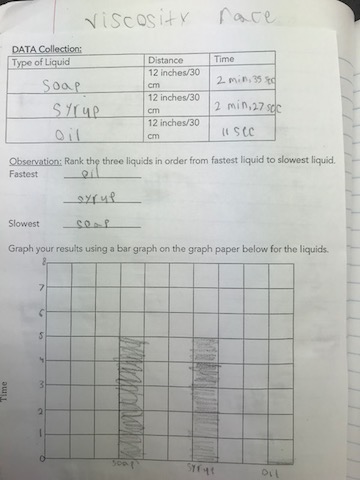 viscosity race
DATA Collection:
Type of Liquid Distance Time
soap 12 inches/30 cm 2 min,35 sec
syrup 12 inches/30 cm 2 min,27 sec
oil 12 inches/30 cm 11 sec
Observation: Rank the three liquids in order from fastest liquid to slowest liquid.
Fastest oil
syrup
Slowest soap
Graph your results using a bar graph on the graph paper below for the liquids.
8
7
6
5
4
3
2
1
0
Time
soap syrup oil